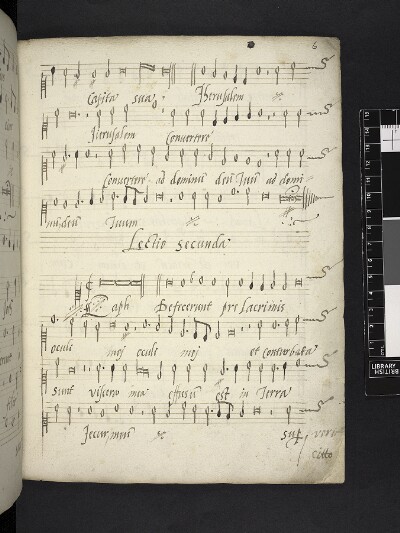 6
Capita sua Jherusalem
Jherusalem Convertere
Convertere ad dominū deū tuū ad domi
nū deū tuum
Lectio secunda
Caph Defecerunt pre lacrimis
oculi mej oculi mej et conturbata
sunt viscera mea effusū est in terra
Jecur meum
cito
BRITISH
LIBRARY